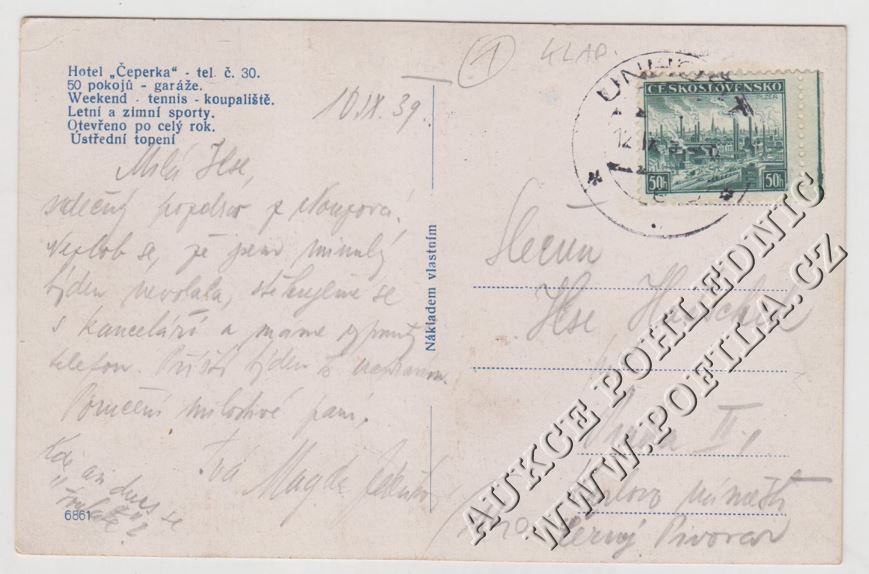 Hotel „Čeperka" - tel. č. 30.
50 pokojů - garáže.
Weekend - tennis - koupaliště.
Letní a zimní sporty.
Otevřeno po celý rok.
Ústřední topení
10.IX.39.
1
KLAP.
UNHOŠŤ
12 IX
ČESKOSLOVENSKO
50h 50h
Milá Ilse,
srdečný pozdrav z
se, že jsem minulý
týden nevolala, stěhujeme se
s kanceláří a máme vypnutý
telefon. Příští týden to
Poručení milostivé paní,
Tvá Magda
Kde asi dnes se
6861
Nákladem vlastním
Slečna
Ilse
Praha II.,
Karlovo náměstí
Černý Pivovar
AUKCE POHLEDNIC
WWW.POFILA.CZ